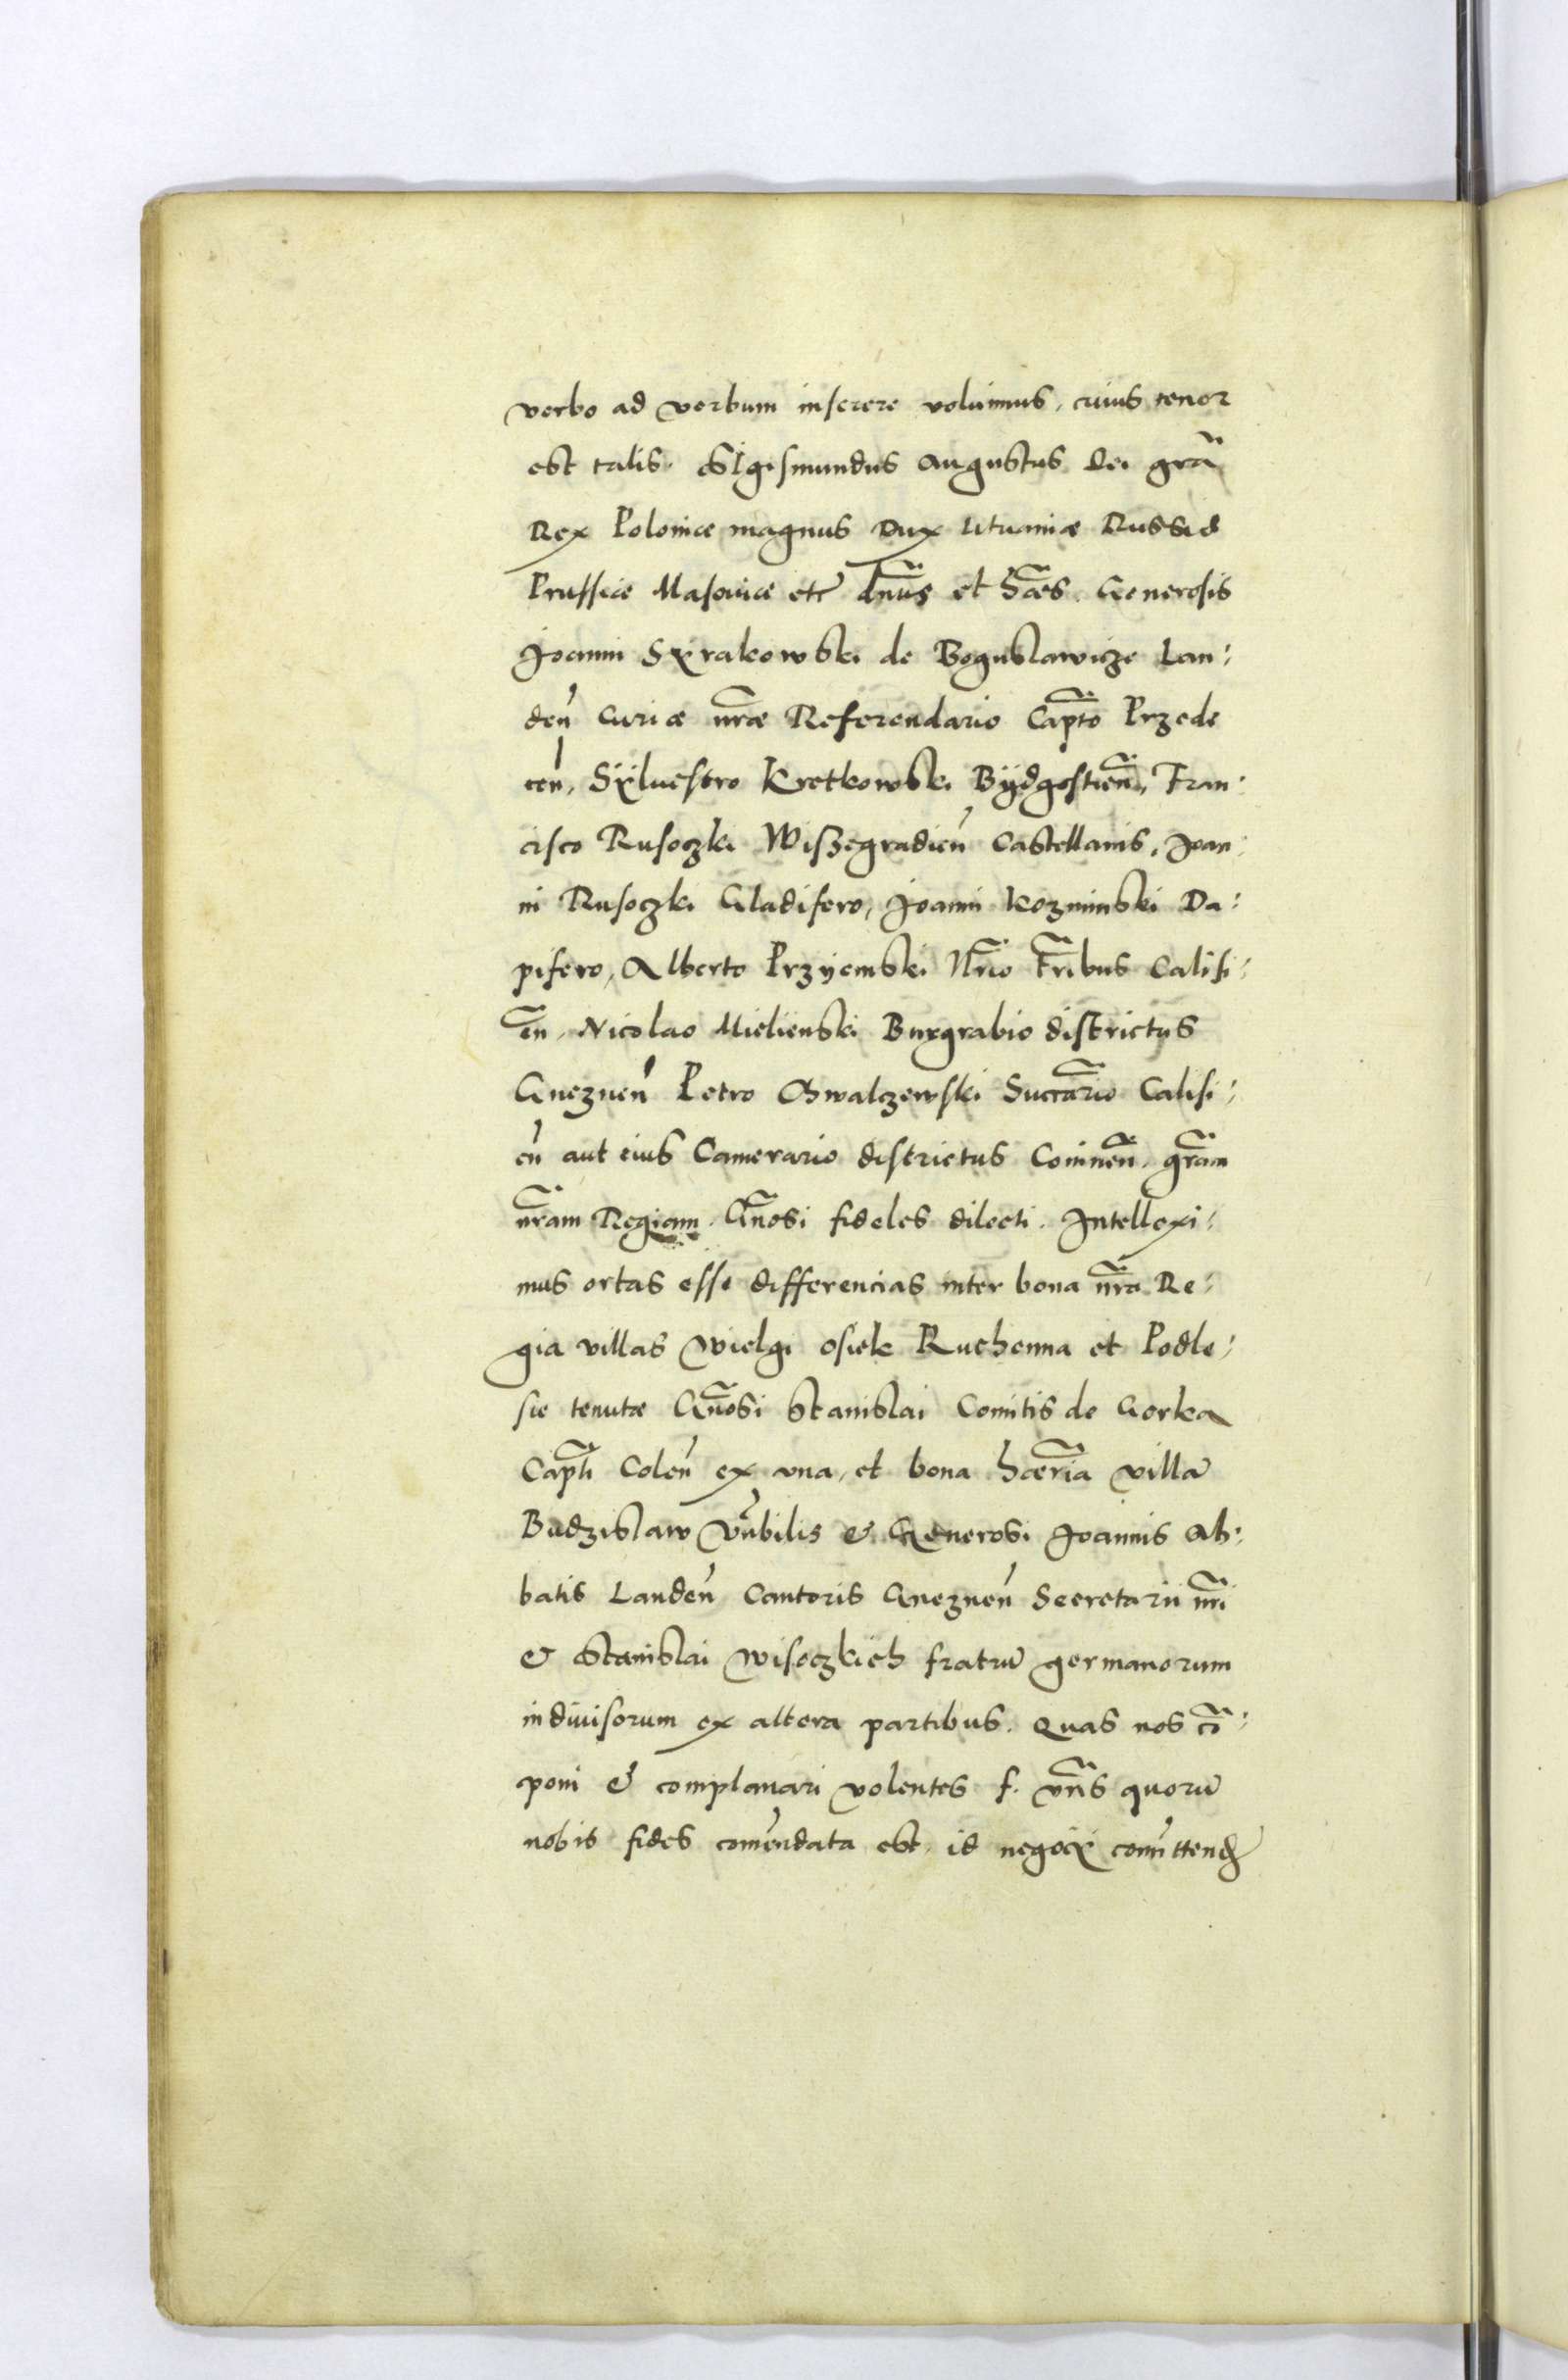 verbo ad verbum inserere voluimus, cuius tenor
est talis. Sigismundus Augustus Dei grã
Rex Poloniæ magnus Dux Lituaniæ Russiæ
Prussiæ Masouiæ etc̃ dñus et hæ̃s. Generosis
Joanni Sÿrakowski de Boguslawicze Lan:
deñ Curiæ nr̃æ Referendario Capto̅ Przede
ceñ, Sÿluestro Kretkowski Bÿdgostieñ, Fran:
cisco Rusoczki Wiszegradieñ Castellanis, Joan:
ni Rusoczki Gladifero, Joanni Kozminski Da:
pifero, Alberto Przÿemski Nr̃io Fr̃ibus Calisi:
eñ, Nicolao Mielienski Burgrabio districtus
Gnezneñ Petro Chwalczewski Succãrio Calisi:
eñ aut eius Camerario districtus Coinneñ, gr̃am
nr̃am Regiam. Gñosi fideles dilecti. Intellexi:
mus ortas esse differencias inter bona nr̃a Re:
gia villas Wielgi osiek Ruchenna et Podle:
sie tenutæ Gñosi Stanislai Comitis de Gorka
Capti̅ Coleñ ex vna, et bona hæ̃ria villã
Budzislaw Vñbilis & Generosi Joannis Ab:
batis Landeñ Cantoris Gnezneñ Secretarii nr̃i
& Stanislai Wisoczkich fratrũ germanorum
indiuisorum ex altera partibus. Quas nos cõ:
poni & complanari volentes f. vr̃is quorũ
nobis fides com̃endata est, id negocÿ com̃ittend̃